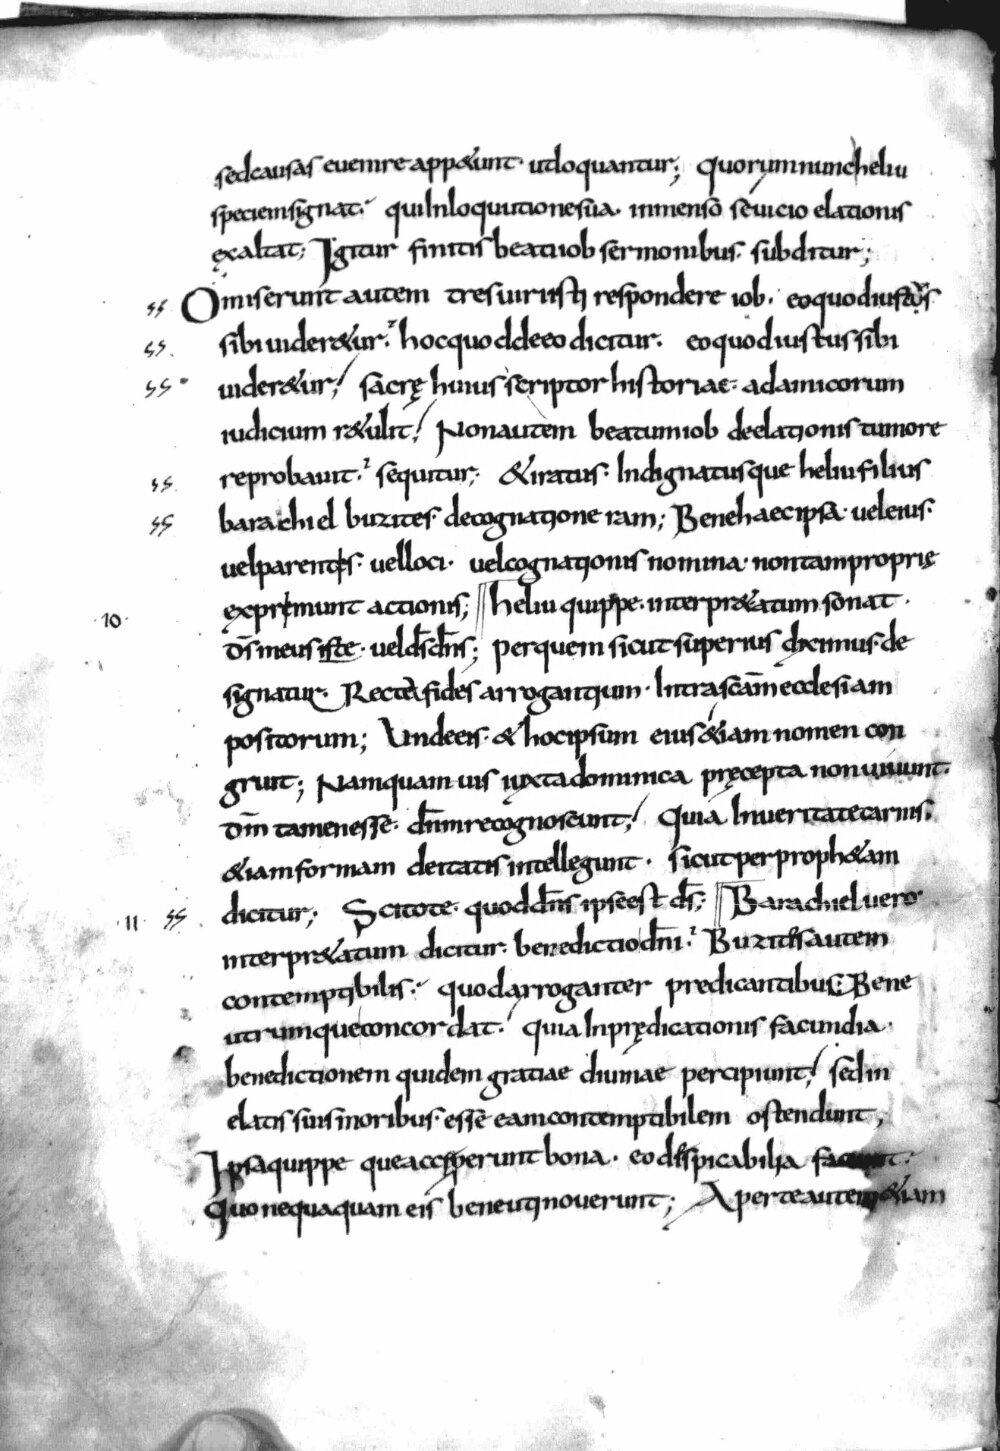 sedcausas euenire app&unt· utloquantur; quorumnunc heliu
speciemsignat· quiInloquutionesua· inmenso seuicio elationis
exaltat; Igitur finitis beatiiob sermonibus· subditur;
ss Omiserunt autem tresuiriisti respondere iob· eoquodiustus
ss· sibi uider&ur· hocquoddeeo dicitur· eoquodiustussibi
ss· uider&ur; sacrę huius scriptor historiae· adamicorum
iudicium r&ulit; Nonautem beatumiob deelationis tumore
ss· reprobauit· sequitur; &iratus· Indignatusque heliufilius
ss barachiel buzites· decognatione ram; Benehaecipsa· ueleius·
uelparentis· uelloci· uelcognationis nomina· nontamproprię
·10· exprimunt actionis; heliu quippe· interpr&atum sonat·
ds̄ meus iste· uelds̄dn̄s; perquem sicut superius diximus· de
signatur· Recta fides arrogantium· Intrascām ecclesiam
positorum; Undeeis· & hocipsum eius&iam nomen con
gruit; Namquam uis iuxtadominica pręcepta nonuiuunt·
dm̄ tamenesse· dn̄mrecognoscunt; Quia Inueritatecarnis·
&iamformam deitatis intellegunt· sicut perproph&am
·11· ss· dicitur; Scitote· quoddn̄s ipseest ds̄; Barachieluero·
interpr&atum dicitur· benedictiodn̄i· Buzitesautem
contemptibilis· quodarroganter predicantibus; Bene
utrumqueconcordat· quia Inprędicationis facundia·
benedictionem quidem gratiae diuinae percipiunt; sedin
elatis suismoribus· esse eamcontemptibilem ostendunt;
Ipsaquippe queacceperunt bona· eo despicabilia faciunt·
Quo nequaquam eis beneutinouerunt; Aperteautem&iam